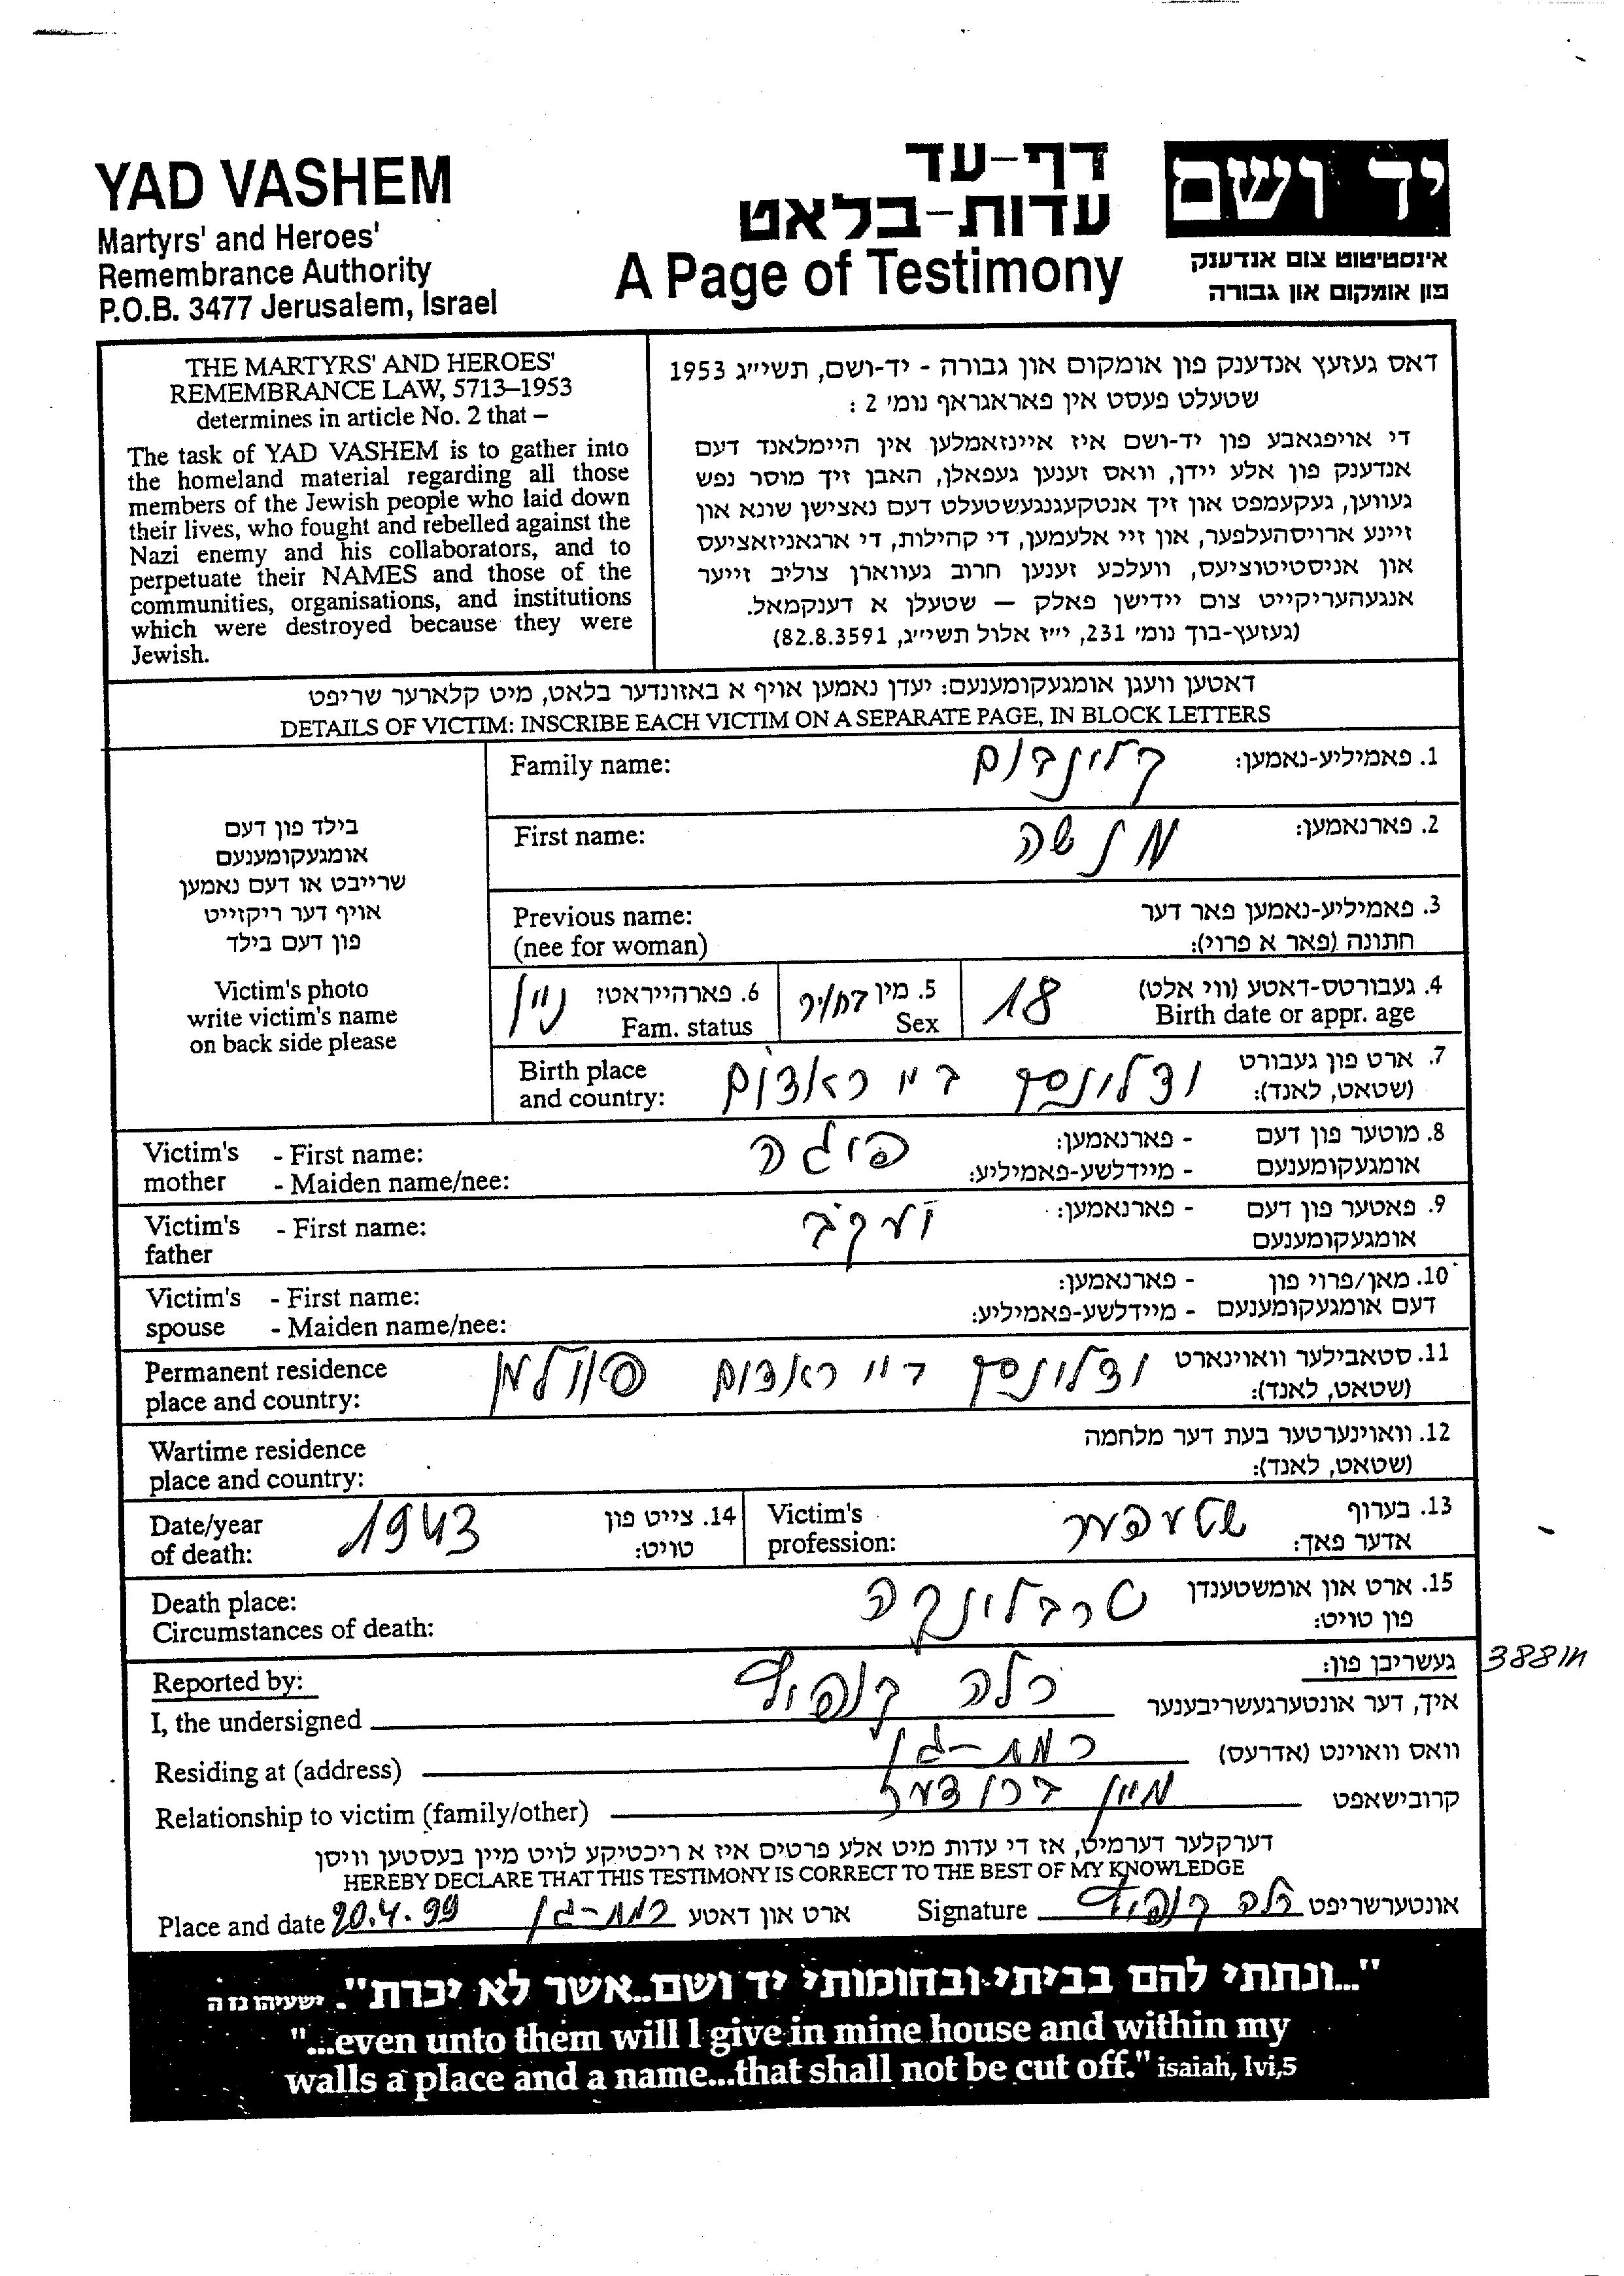 YAD VASHEM
Martyrs' and Heroes'
Remembrance Authority
P.O.B. 3477 Jerusalem, Israel
דף-עד
עדות-בלאט
A Page of Testimony
יד ושם
אינסטיטוט צום אנדענק
פון אומקום און גבורה
THE MARTYRS' AND HEROES'
REMEMBRANCE LAW, 5713–1953
determines in article No. 2 that –
The task of YAD VASHEM is to gather into
the homeland material regarding all those
members of the Jewish people who laid down
their lives, who fought and rebelled against the
Nazi enemy and his collaborators, and to
perpetuate their NAMES and those of the
communities, organisations, and institutions
which were destroyed because they were
Jewish.
דאס געזעץ אנדענק פון אומקום און גבורה - יד-ושם, תשי״ג 1953
שטעלט פעסט אין פאראגראף נומ׳ 2 :
די אויפגאבע פון יד-ושם איז איינזאמלען אין היימלאנד דעם
אנדענק פון אלע יידן, וואס זענען געפאלן, האבן זיך מוסר נפש
געווען, געקעמפט און זיך אנטקעגנגעשטעלט דעם נאצישן שונא און
זיינע ארויסהעלפער, און זיי אלעמען, די קהילות, די ארגאניזאציעס
און אניסטיטוציעס, וועלכע זענען חרוב געווארן צוליב זייער
אנגעהעריקייט צום יידישן פאלק – שטעלן א דענקמאל.
(געזעץ-בוך נומ׳ 231, י״ז אלול תשי״ג, 82.8.3591)
דאטען וועגן אומגעקומענעם: יעדן נאמען אויף א באזונדער בלאט, מיט קלארער שריפט
DETAILS OF VICTIM: INSCRIBE EACH VICTIM ON A SEPARATE PAGE, IN BLOCK LETTERS
בילד פון דעם
אומגעקומענעם
שרייבט או דעם נאמען
אויף דער ריקזייט
פון דעם בילד
Victim's photo
write victim's name
on back side please
Family name: קלינבום 1. פאמיליע-נאמען:
First name: מנשה 2. פארנאמען:
Previous name: 3. פאמיליע-נאמען פאר דער
(nee for woman) חתונה (פאר א פרוי):
4. געבורטס-דאטע (ווי אלט) 18
Birth date or appr. age
5. מין בחור
Sex
6. פארהייראט? ניין
Fam. status
Birth place 7. ארט פון געבורט
and country: (שטאט, לאנד): וצלונסף ביי ראדום
Victim's - First name: פיגה - פארנאמען: 8. מוטער פון דעם
mother - Maiden name/nee: - מיידלשע-פאמיליע: אומגעקומענעם
Victim's - First name: יעקב - פארנאמען: 9. פאטער פון דעם
father אומגעקומענעם
Victim's - First name: - פארנאמען: 10. מאן/פרוי פון
spouse - Maiden name/nee: - מיידלשע-פאמיליע: דעם אומגעקומענעם
Permanent residence 11. סטאבילער וואוינארט
place and country: (שטאט, לאנד): וצלונסף ביי ראדום פוילמן
Wartime residence 12. וואוינערטער בעת דער מלחמה
place and country: (שטאט, לאנד):
Victim's 13. בערוף
profession: אדער פאך: שטעפער
Date/year 14. צייט פון
of death: 1943 טויט:
Death place: 15. ארט און אומשטענדן
Circumstances of death: טרבלינקה פון טויט:
Reported by: געשריבן פון:
388111
I, the undersigned רלה קופיץ איך, דער אונטערגעשריבענער
Residing at (address) רמת-גן וואס וואוינט (אדרעס)
Relationship to victim (family/other) מיין ברודער קרובישאפט
דערקלער דערמיט, אז די עדות מיט אלע פרטים איז א ריכטיקע לויט מיין בעסטען וויסן
HEREBY DECLARE THAT THIS TESTIMONY IS CORRECT TO THE BEST OF MY KNOWLEDGE
Place and date 20.4.99 רמת-גן ארט און דאטע Signature רלה קופיץ אונטערשריפט
"...ונתתי להם בביתי ובחומותי יד ושם..אשר לא יכרת". ישעיהו נו ה
"...even unto them will I give in mine house and within my
walls a place and a name...that shall not be cut off." isaiah, lvi,5